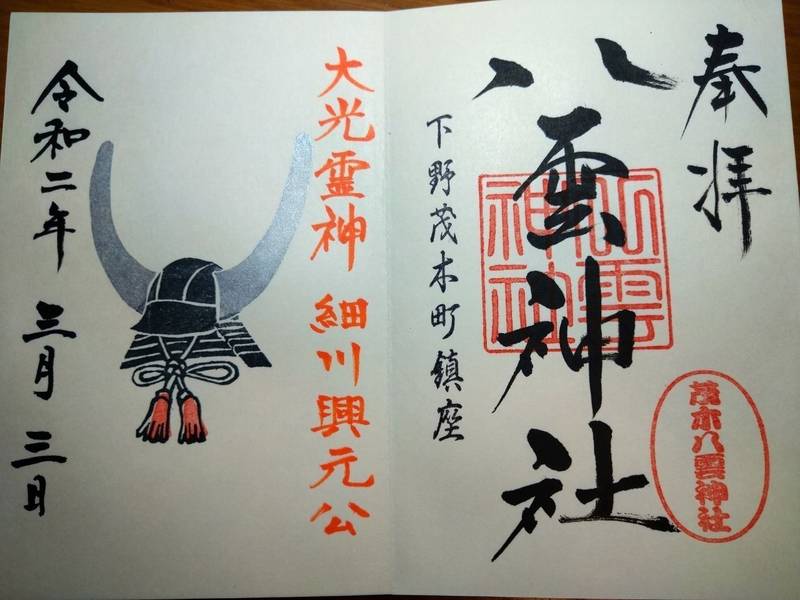 奉拝
八雲神社
八雲神社
茂木八雲神社
下野茂木町鎮座
大光霊神 細川興元公
令和二年 三月 三日